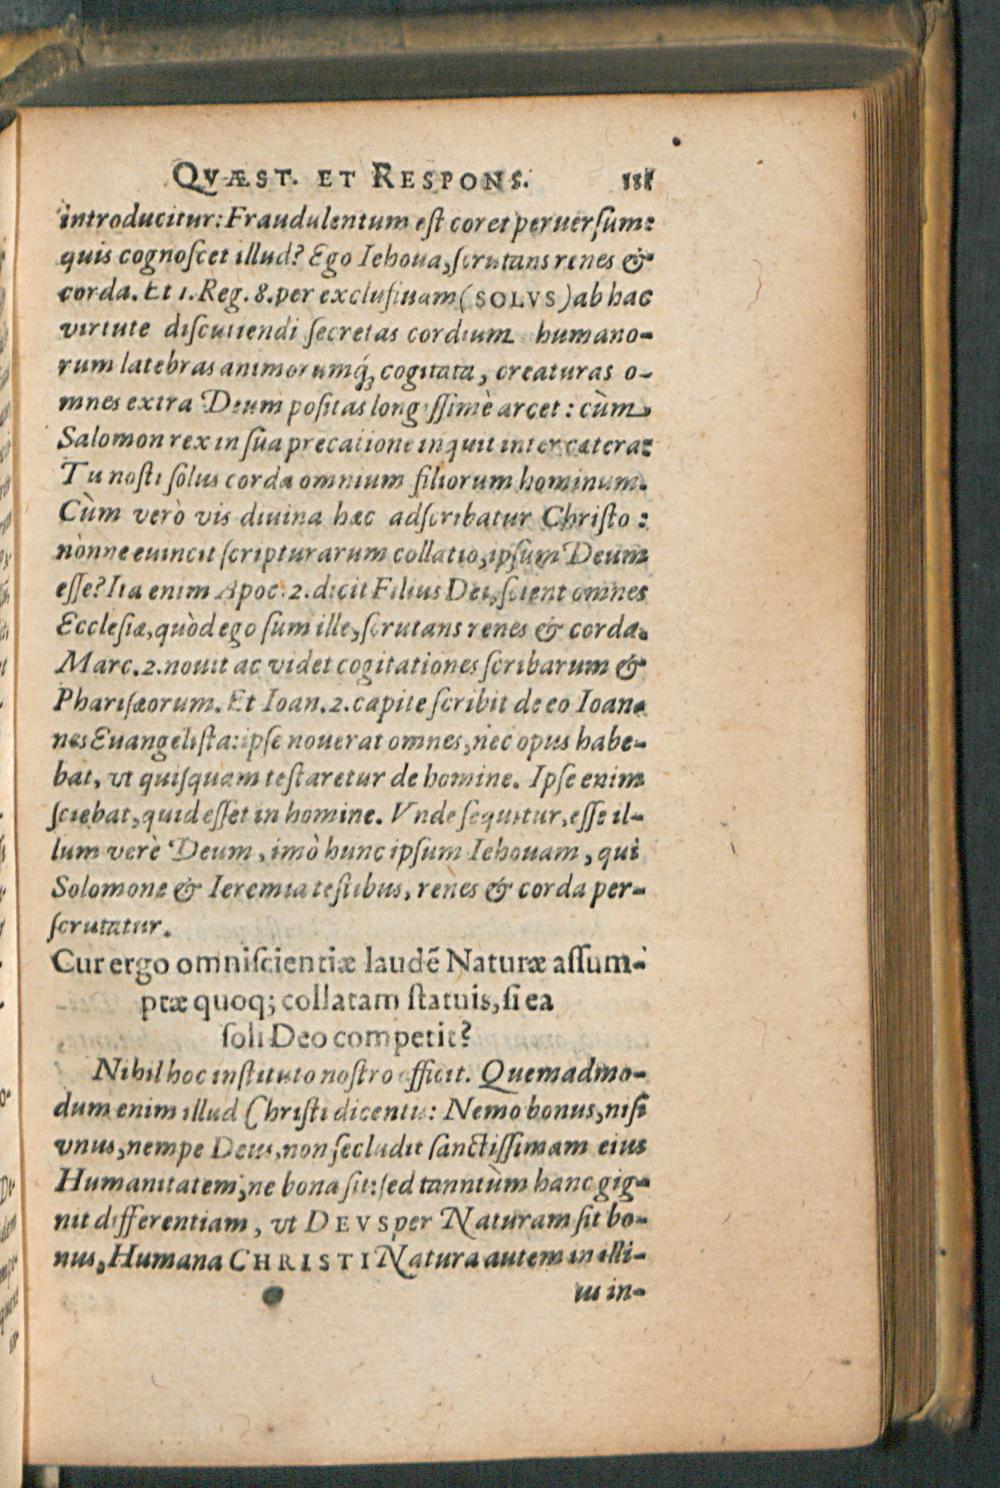 QVÆST. ET RESPONS. 111
introducitur: Fraudulentum est cor et peruersum:
quis cognoscet illud? Ego Iehoua, scrutans renes &
corda. Et 1. Reg. 8. per exclusiuam (SOLVS) ab hac
virtute discutiendi secretas cordium humano-
rum latebras animorumq́; cogitata, creaturas o-
mnes extra Deum positas longissimè arcet: cùm
Salomon rex in sua precatione inquit inter cætera:
Tu nosti solus corda omnium filiorum hominum.
Cùm verò vis diuina hæc adscribatur Christo:
nònne euincit scripturarum collatio, ipsum Deum
esse? Ita enim Apoc. 2. dicit Filius Dei, scient omnes
Ecclesiæ, quòd ego sum ille, scrutans renes & corda.
Marc. 2. nouit ac videt cogitationes scribarum &
Pharisæorum. Et Ioan. 2. capite scribit de eo Ioan-
nes Euangelista: ipse nouerat omnes, nec opus habe-
bat, vt quisquam testaretur de homine. Ipse enim
sciebat, quid esset in homine. Vnde sequitur, esse il-
lum verè Deum, imò hunc ipsum Iehouam, qui
Solomone & Ieremia testibus, renes & corda per-
scrutatur.
Cur ergo omniscientiæ laudẽ Naturæ assum-
ptæ quoq; collatam statuis, si ea
soli Deo competit?
Nihil hoc instituto nostro officit. Quemadmo-
dum enim illud Christi dicentis: Nemo bonus, nisi
vnus, nempe Deus, non secludit sanctissimam eius
Humanitatem, ne bona sit: sed tanntùm hanc gig-
nit differentiam, vt DEVS per Naturam sit bo-
nus, Humana CHRISTI Natura autem in illi-
us in-